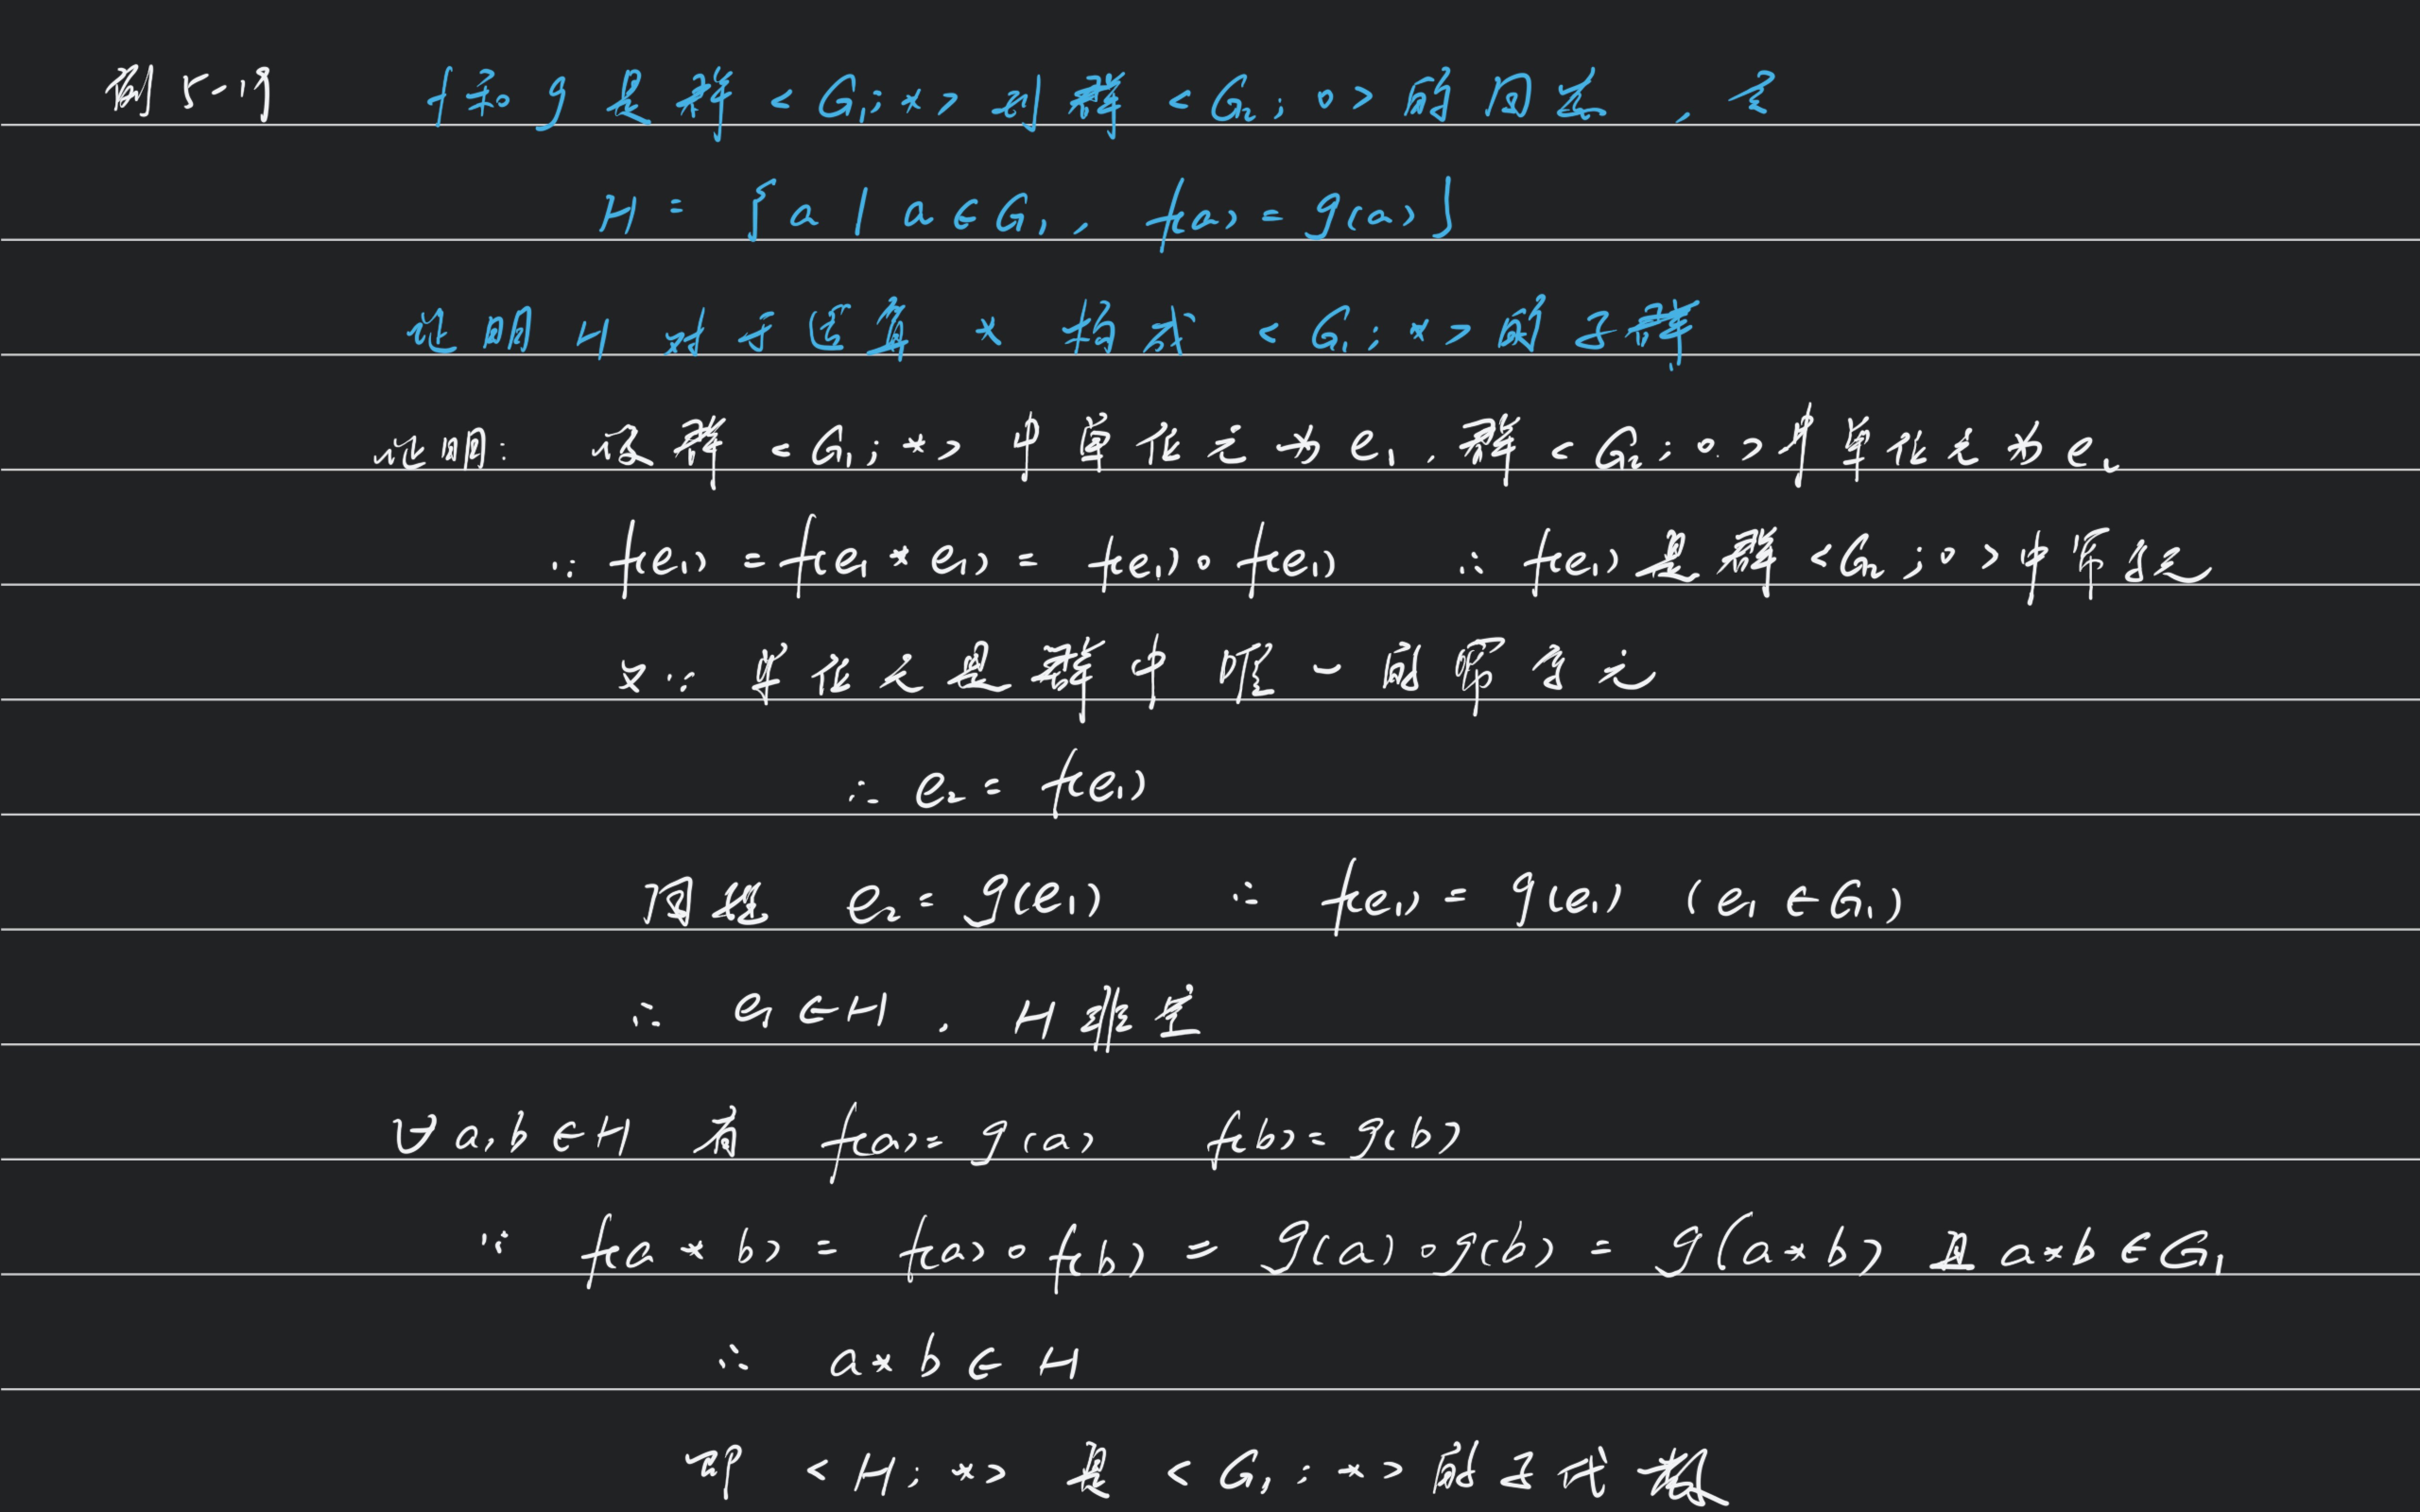 例 5-19 f和 g 是群 <G₁;*> 到 群 <G₂;∘> 的同态 , 令
H = {a | a∈G₁, f(a) = g(a)}
证明 H 对于运算 * 构成 <G₁;*> 的子群
证明: 设群 <G₁;*> 中单位元为 e₁, 群 <G₂;∘> 中单位元为 e₂
∵ f(e₁) = f(e₁ * e₁) = f(e₁)∘f(e₁) ∴ f(e₁) 是群 <G₂;∘> 中幂等元
又∵ 单位元是群中唯一的幂等元
∴ e₂ = f(e₁)
同理 e₂ = g(e₁) ∴ f(e₁) = g(e₁) (e₁ ∈ G₁)
∴ e₁ ∈ H , H 非空
∀ a,b ∈ H 有 f(a) = g(a) f(b) = g(b)
∵ f(a * b) = f(a)∘f(b) = g(a)∘g(b) = g(a*b) 且 a*b ∈ G₁
∴ a*b ∈ H
即 <H;*> 是 <G₁;*> 的子代数